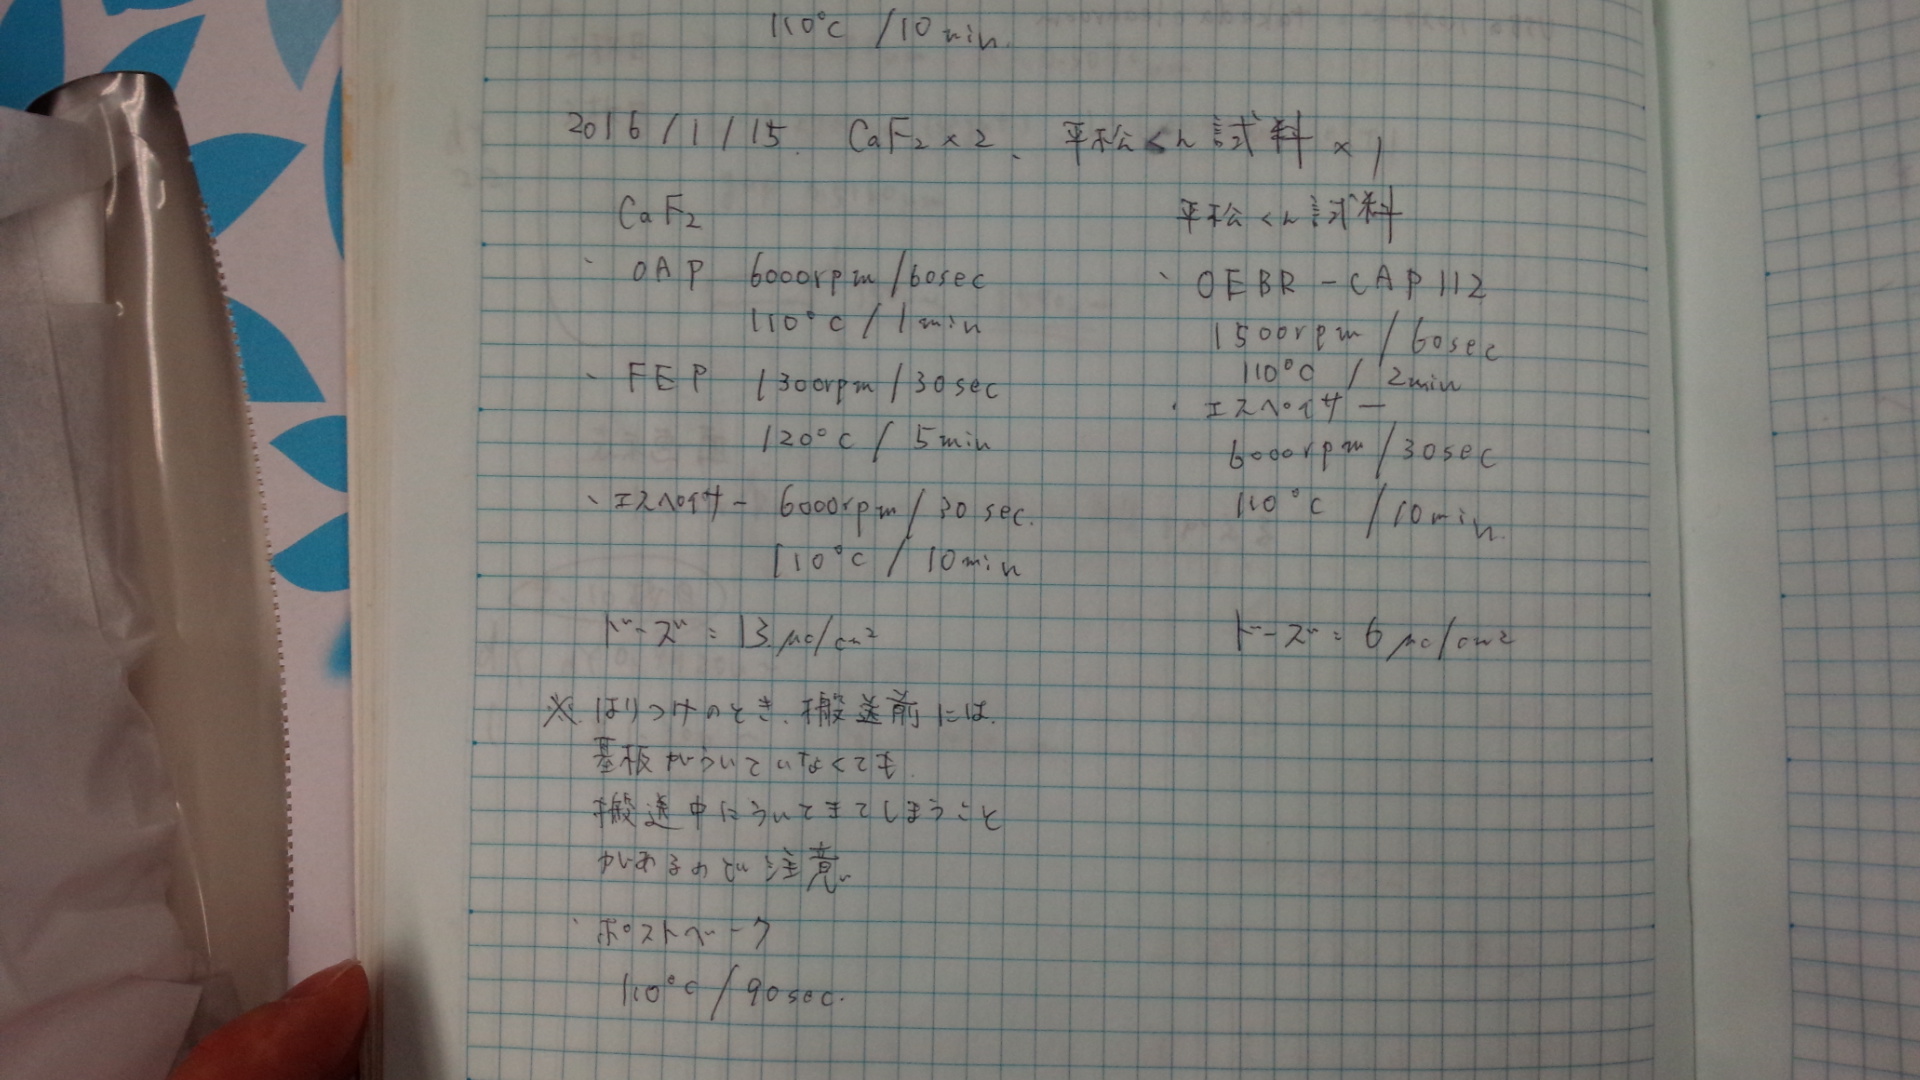 110℃/10min.
2016/1/15. CaF₂×2、平松くん試料×1
CaF₂
・OAP 6000rpm/60sec
110℃/1min
・FEP 1300rpm/30sec
120℃/5min
・エスペイサー 6000rpm/30sec.
110℃/10min
ドーズ=13μc/cm²
※はりつけのとき、搬送前には、
基板がういてなくても
搬送中にういてきてしまうこと
があるので注意
・ポストベーク
110℃/90sec.
平松くん試料
・OEBR-CAP112
1500rpm/60sec
110℃/2min
・エスペイサー
6000rpm/30sec
110℃/10min.
ドーズ=6μc/cm²